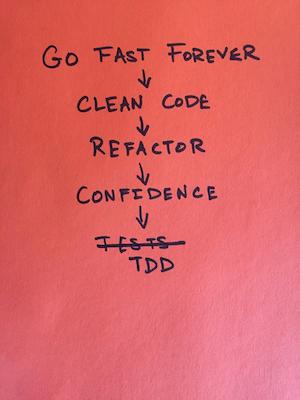 GO FAST FOREVER
↓
CLEAN CODE
↓
REFACTOR
↓
CONFIDENCE
↓
TESTS
TDD